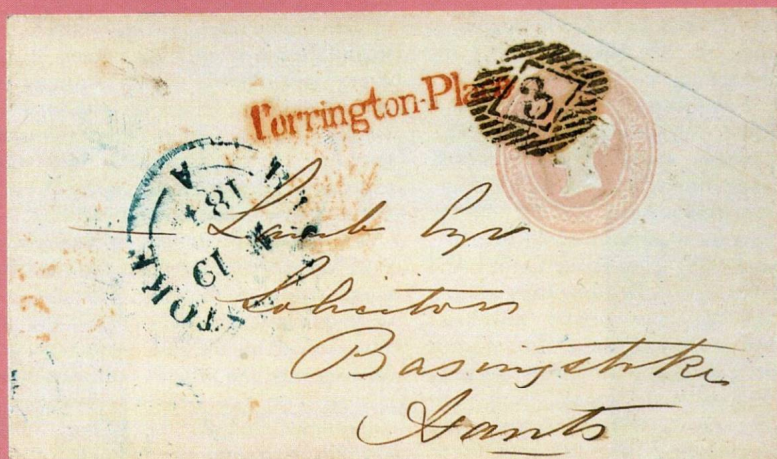 Torrington-Place
8
A
19
184
TOKE
Lamb Esqr
Solicitors
Basingstoke
Hants